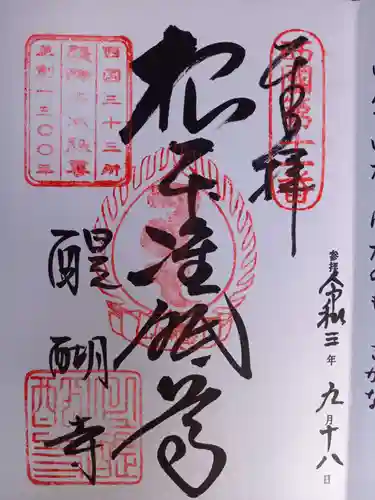 西國第十一番
奉拝
根本准胝尊
醍醐寺
西国三十三所
草創一三〇〇年
参拝 令和三年九月十八日